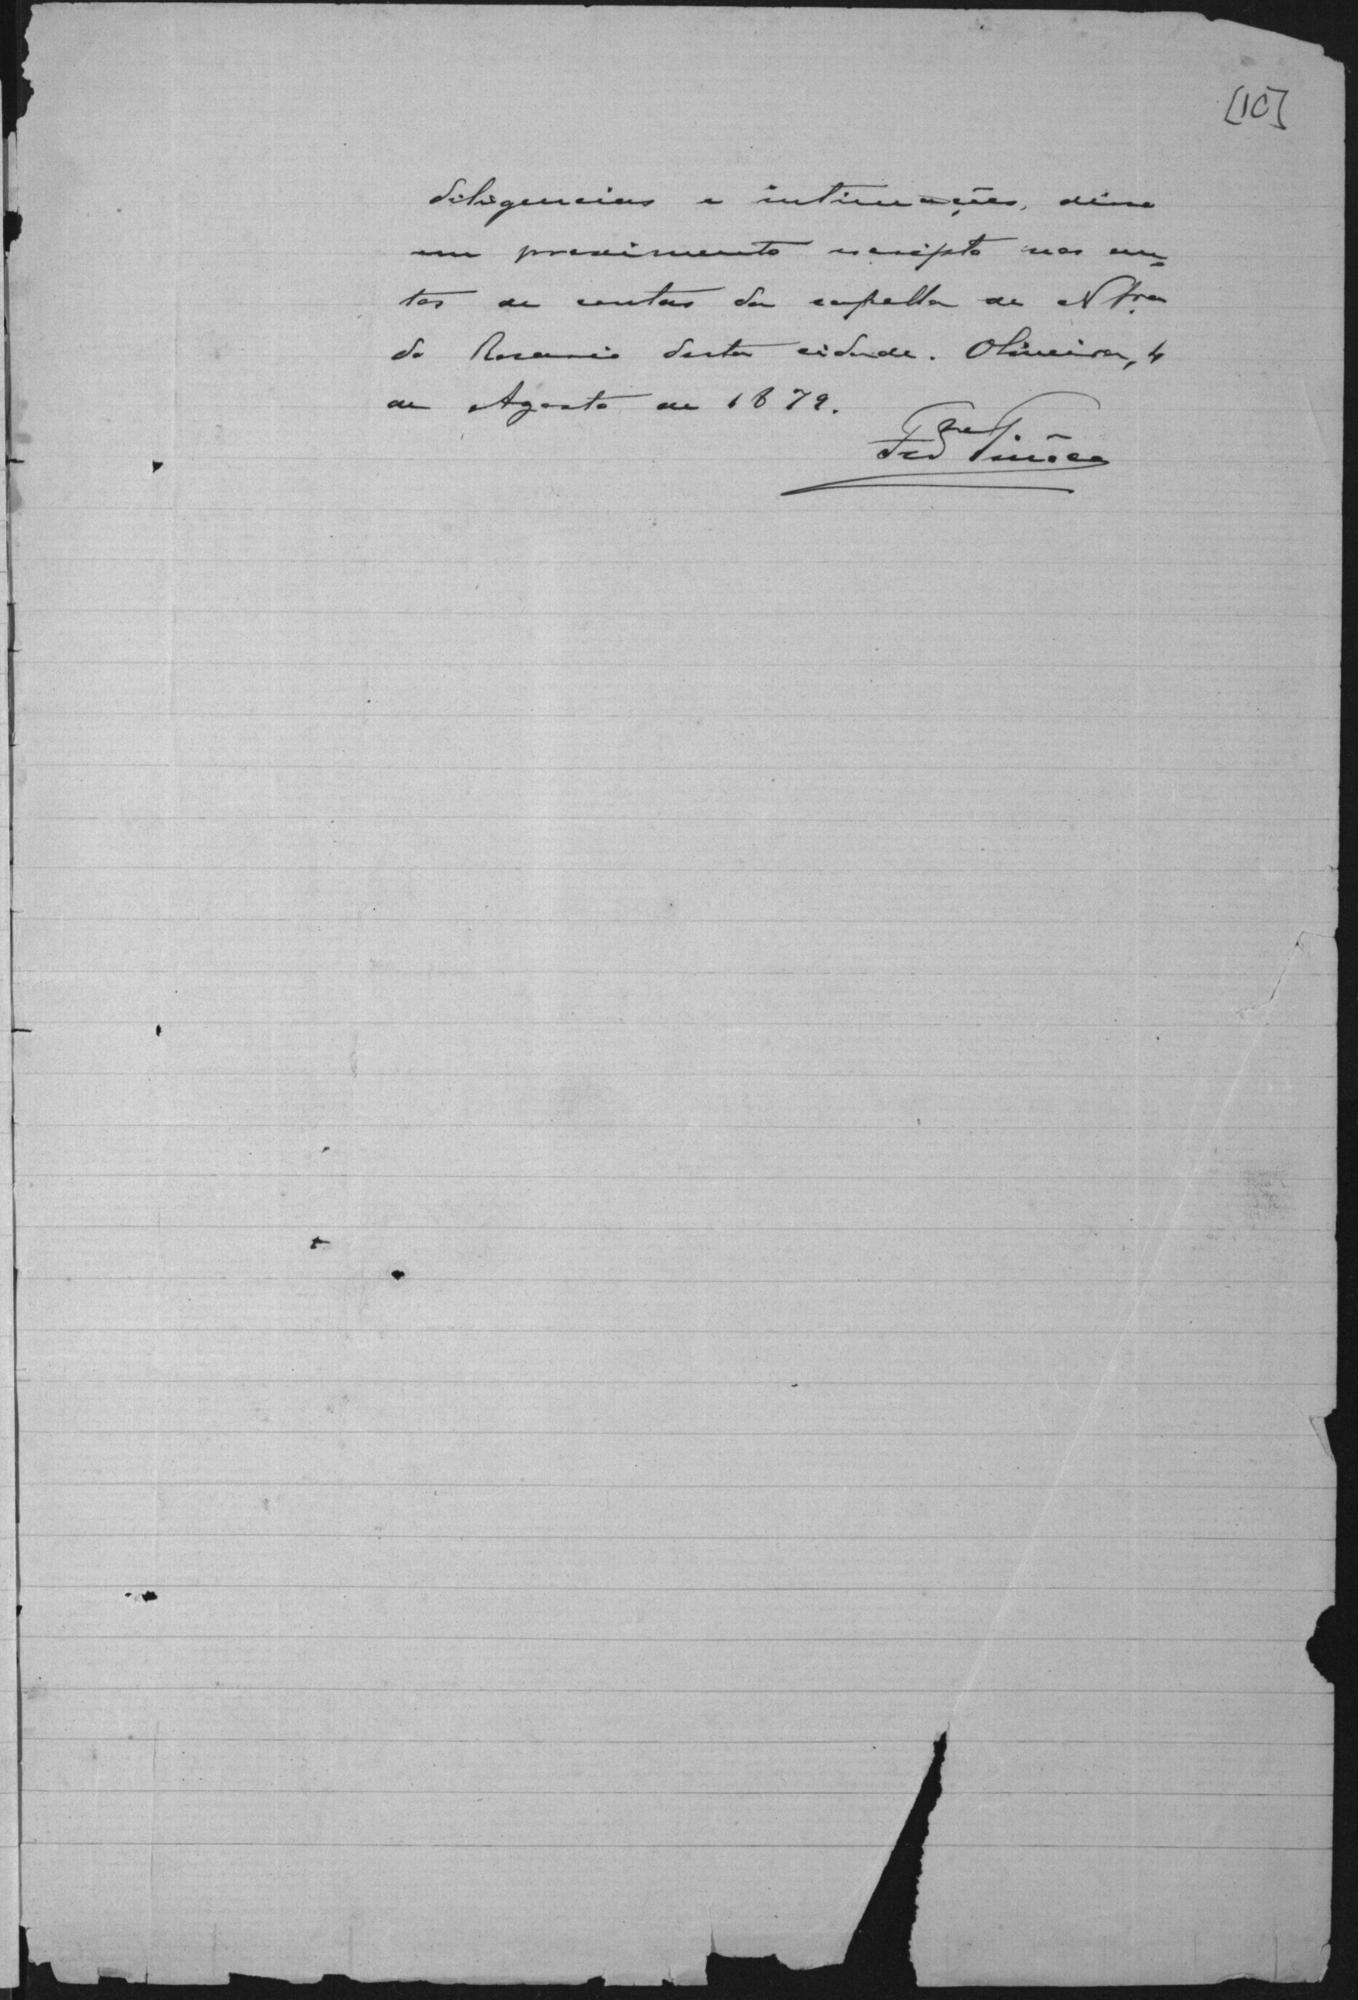 [10]
diligencias e intimações, disse
em provimento escripto nos au=
tos de contas da capella de N Sra
do Rosario desta cidade. Oliveira, 4
de Agosto de 1879.
Tinôco